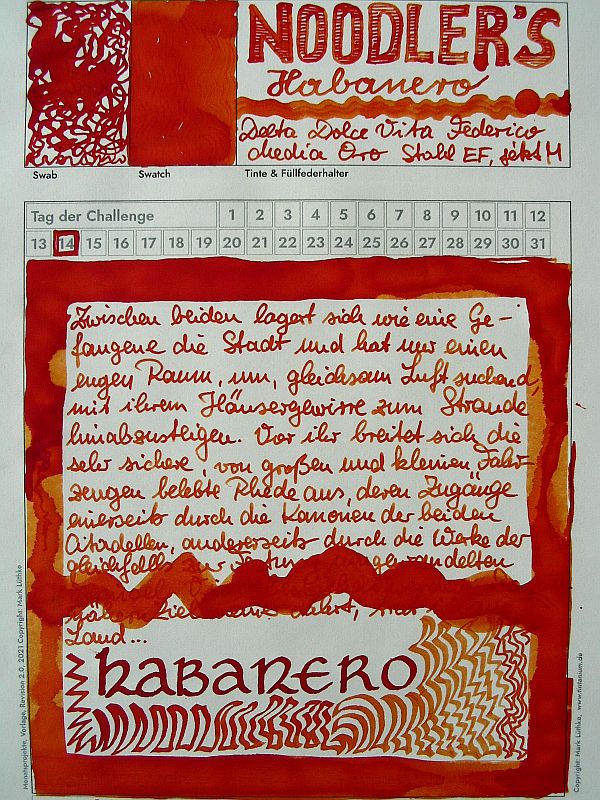 NOODLER'S
Habanero
Delta Dolce Vita Federico
Media Oro Stahl EF, jetzt M
Swab Swatch Tinte & Füllfederhalter
Tag der Challenge 1 2 3 4 5 6 7 8 9 10 11 12
13 14 15 16 17 18 19 20 21 22 23 24 25 26 27 28 29 30 31
Zwischen beiden lagert sich wie eine Ge-
fangene die Stadt und hat nur einen
engen Raum, um, gleichsam Luft suchend,
mit ihrem Häusergewirre zum Strande
hinabzusteigen. Vor ihr breitet sich die
sehr sichere, von großen und kleinen Fahr-
zeugen belebte Rhede aus, deren Zugänge
einerseits durch die Kanonen der beiden
Citadellen, andererseits durch die Werke der
gleichfalls zur
Land...
HABANERO
Monatsprojekte, Vorlage, Revision 2.0, 2021 Copyright: Mark Lüthke
Copyright: Mark Lüthke, www.fintanuum.de